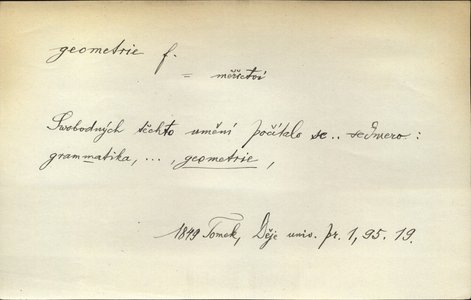 geometrie f.
= měřictví
Svobodných těchto umění počítalo se .. sedmero :
grammatika, ..., geometrie,
1849 Tomek, Děje univ. pr. 1, 95. 19.